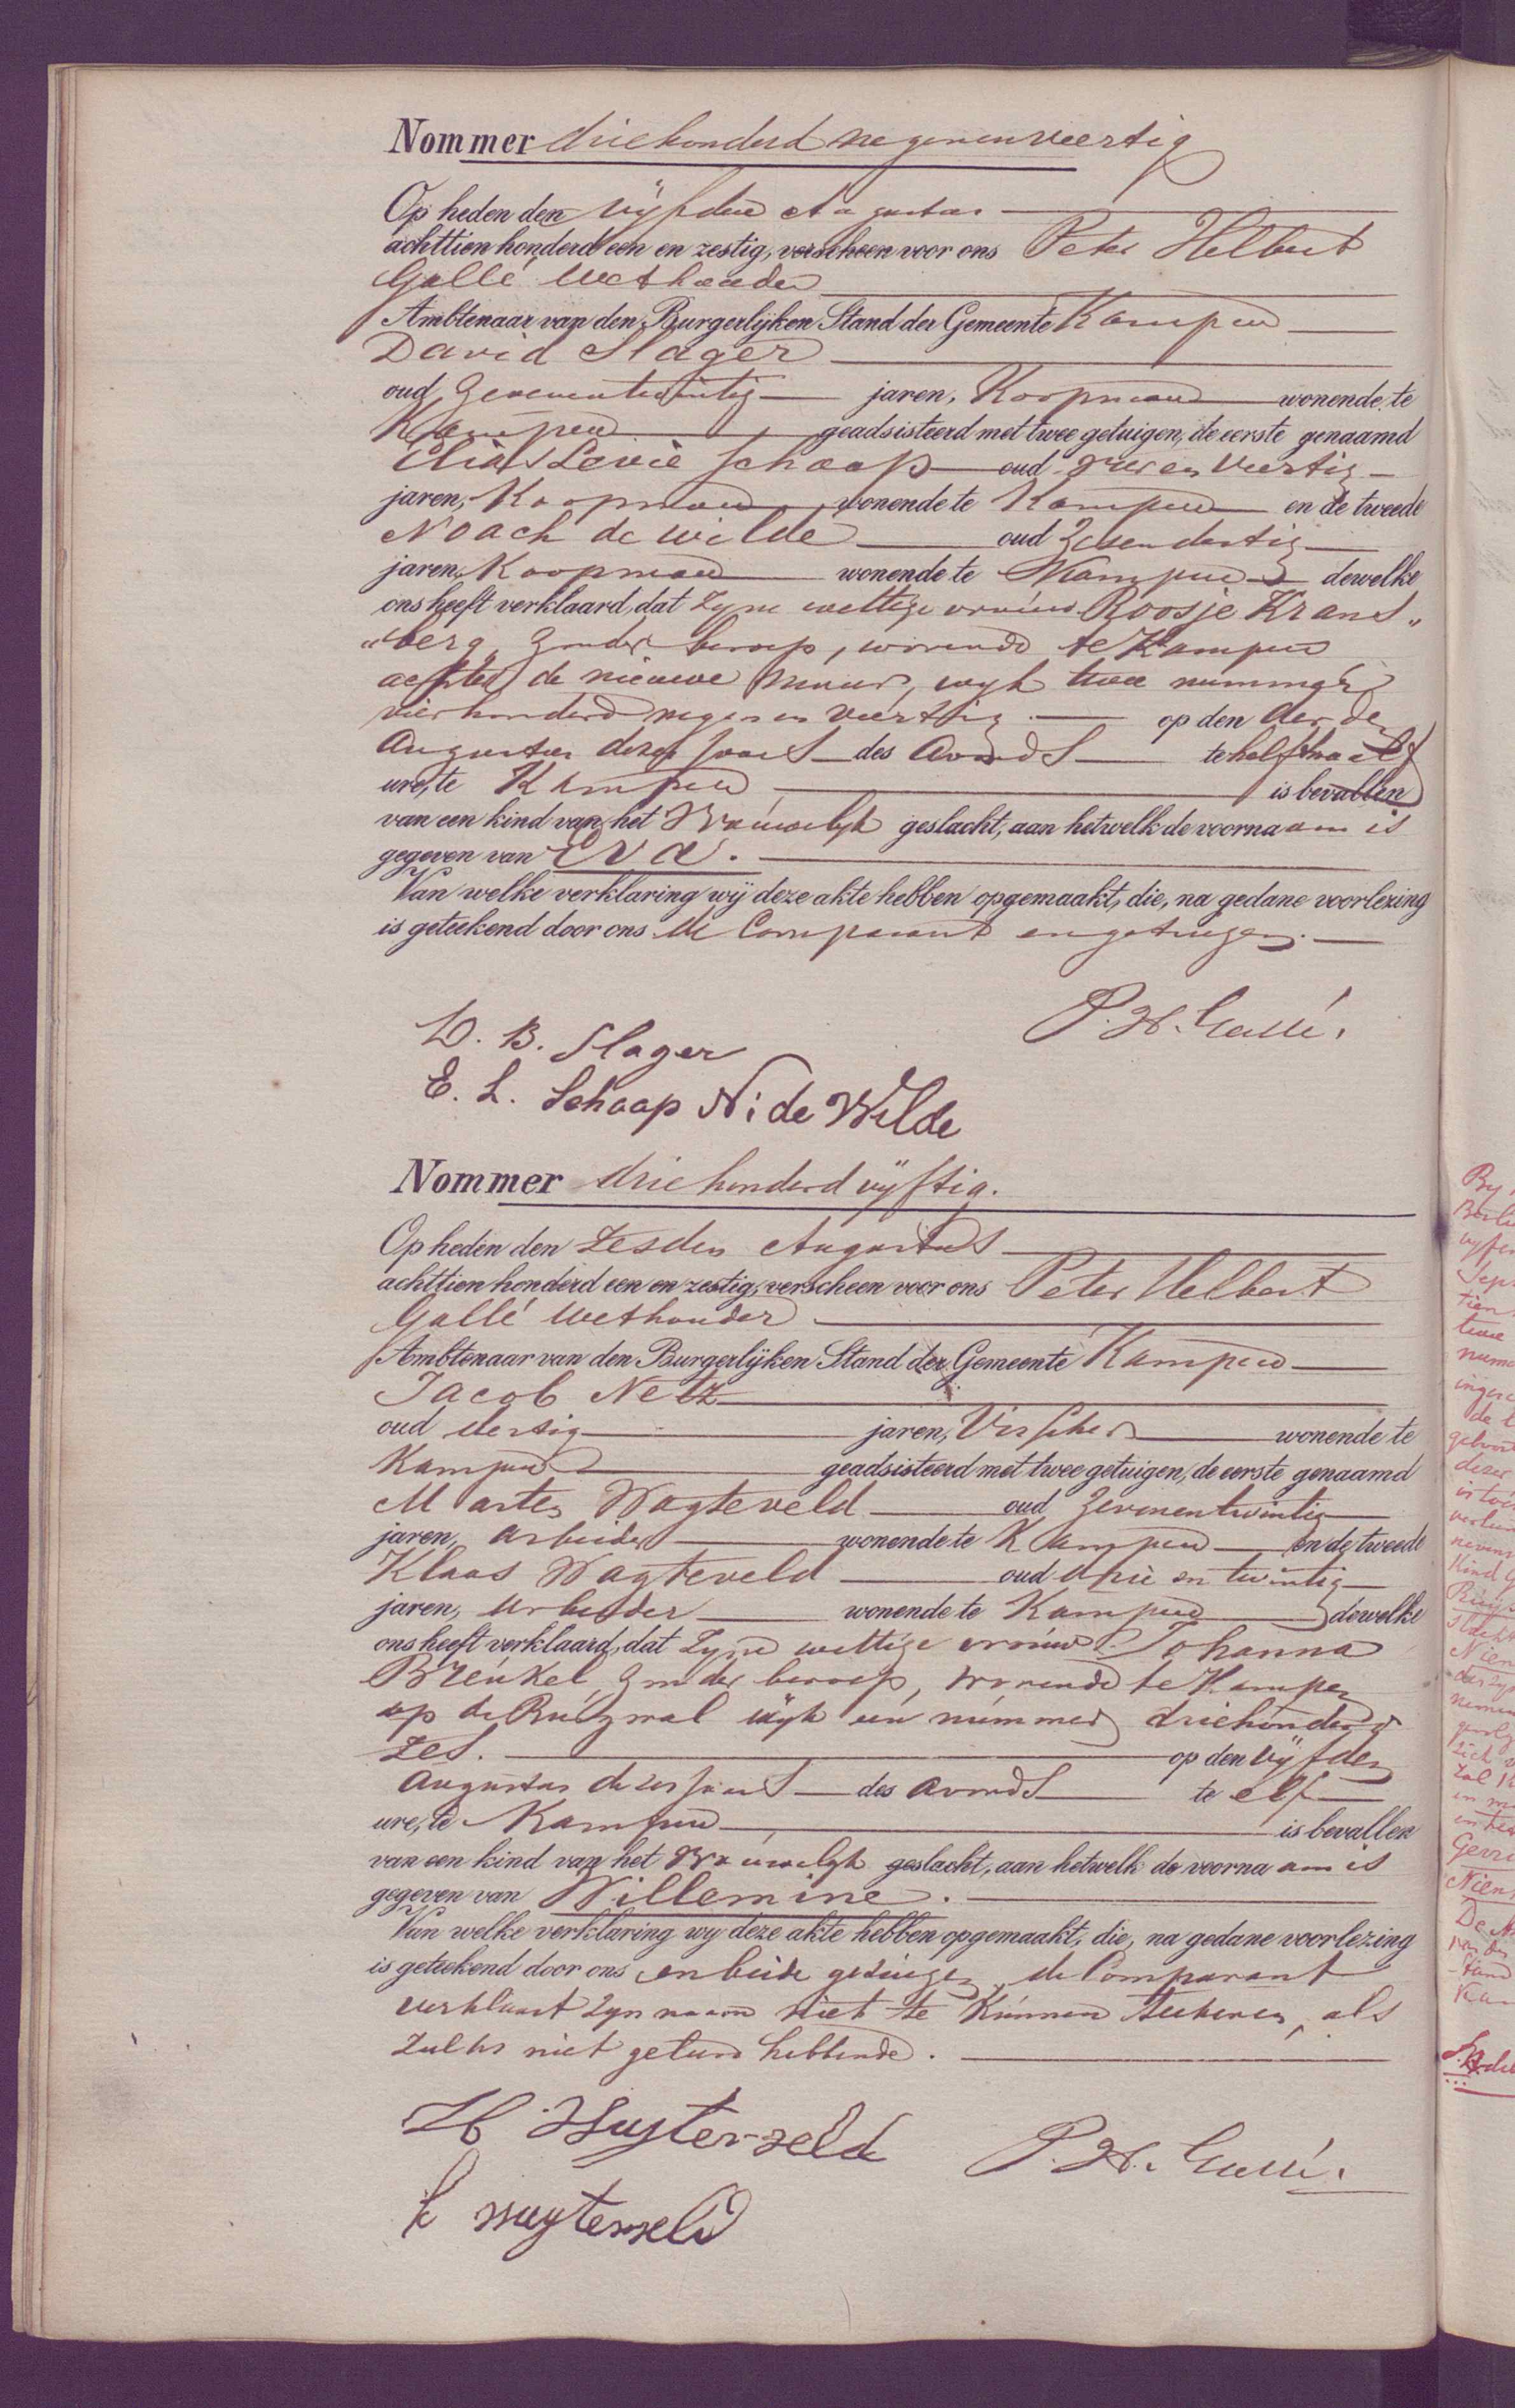 Nommer driehonderd negenenveertig
Op heden den vijfden Augustus
achttien honderd een en zestig, verscheen voor ons Peter Helbert
Gallé Wethouder
Ambtenaar van den Burgerlijken Stand der Gemeente Kampen
David Slager
oud zevenentwintig jaren, Koopman wonende te
Kampen geadsisteerd met twee getuigen, de eerste genaamd
Elias Levie Schaap oud en veertig
jaren, Koopman wonende te Kampen en de tweede
Noach de Wilde oud zesendertig
jaren, Koopman wonende te Kampen dewelke
ons heeft verklaard, dat zyne wettige vrouw Roosje Krans„
„berg, zonder beroep, wonende te Kampen
achter de nieuwe muur, wyk twee nummer
vierhonderd negen en veertig op den derden
Augustus dezes jaars des avonds te half twaalf
ure, te Kampen is bevallen
van een kind van het Vrouwelyk geslacht, aan hetwelk de voornaam is
gegeven van Eva.
Van welke verklaring wij deze akte hebben opgemaakt, die, na gedane voorlezing
is geteekend door ons de Comparant en getuigen.
P. H. Gallé.
D. B. Slager
E. L. Schaap N: de Wilde
Nommer driehonderd vijftig.
Op heden den zesden Augustus
achttien honderd een en zestig, verscheen voor ons Peter Helbert
Gallé Wethouder
Ambtenaar van den Burgerlijken Stand der Gemeente Kampen
Jacob Netz
oud dertig jaren, Visscher wonende te
Kampen geadsisteerd met twee getuigen, de eerste genaamd
Marten Wagteveld oud zevenentwintig
jaren, arbeider wonende te Kampen en de tweede
Klaas Wagteveld oud drie en twintig
jaren, arbeider wonende te Kampen dewelke
ons heeft verklaard, dat zyne wettige vrouw Johanna
Breukel, zonder beroep, wonende te Kampen
op de Burgwal wijk een nummer driehonderd
zes. op den vijfden
Augustus dezes jaars des avonds te elf
ure, te Kampen is bevallen
van een kind van het Vrouwelyk geslacht, aan hetwelk de voornaam is
gegeven van Willemine.
Van welke verklaring wy deze akte hebben opgemaakt, die, na gedane voorlezing
is geteekend door ons en beide getuigen, de Comparant
verklaart zyn naam niet te kunnen teekenen, als
zulks niet geleerd hebbende.
P. H. Gallé.